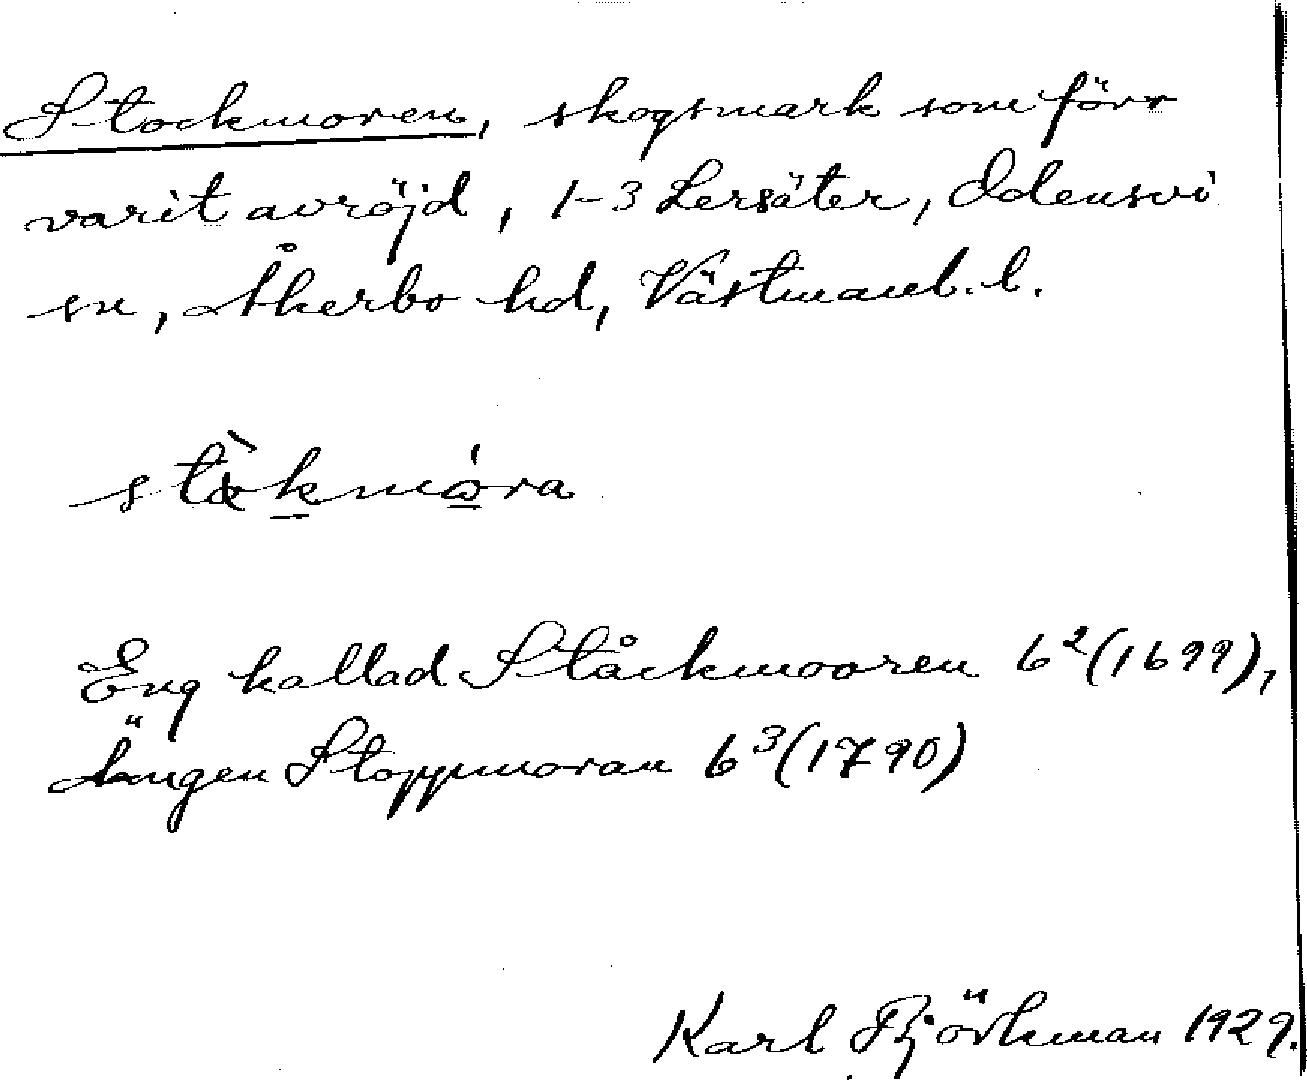 Stockmoren, skogsmark som förr
varit avröjd, 1-3 Lersäter, Odensvi
sn, Åkerbo hd, Västmanl. l.
stòkmóra
Eng kallad Ståckmooren 6²(1699),
Ängen Stoppmoran 6³(1790)
Karl Björkman 1929.